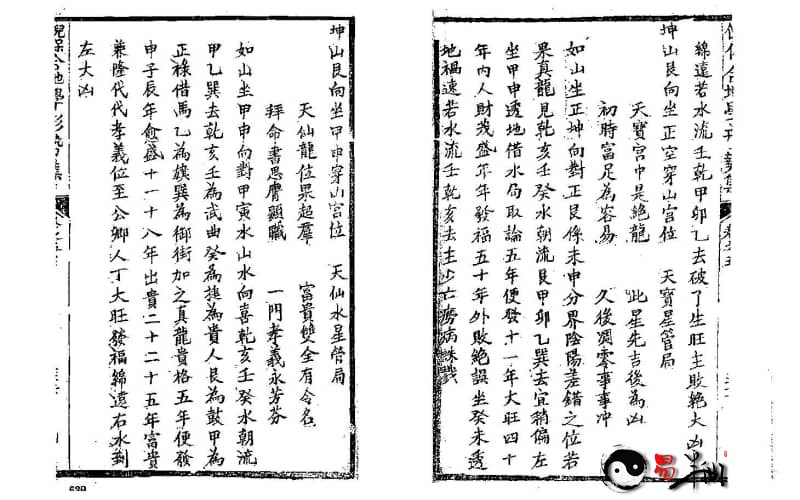 綿遠若水流壬乾甲卯乙去破了生旺主敗絶大凶
坤山艮向坐正空穿山宮位　天寶星管局
天寶宮中是絶龍　此星先吉後為凶
初時富足為容易　久後凋零事事冲
如山坐正坤向對正艮係未申分界陰陽差錯之位若
果真龍見乾亥壬癸水朝流艮甲卯乙巽去宜稍偏左
坐甲申透地借水局取論五年便發十一年大旺四十
年內人財茂盛年年發福五十年外敗絶誤坐癸未透
地禍遠若水流壬乾亥去主少亡癆病
坤山艮向坐甲申穿山宮位　天仙水星管局
天仙龍位果超群　富貴雙全有令名
拜命書思膺顯職　一門孝義永芳芬
如山坐甲申向對甲寅水山水向喜乾亥壬癸水朝流
甲乙巽去乾亥壬為武曲癸為捷為貴人艮為鼓甲為
正祿借馬乙為旗巽為御街加之真龍貴格五年便發
申子辰年愈盛十一十八年出貴二十二十五年富貴
兼隆代代孝義位至公卿人丁大旺發福綿遠右水到
左大凶
639
易